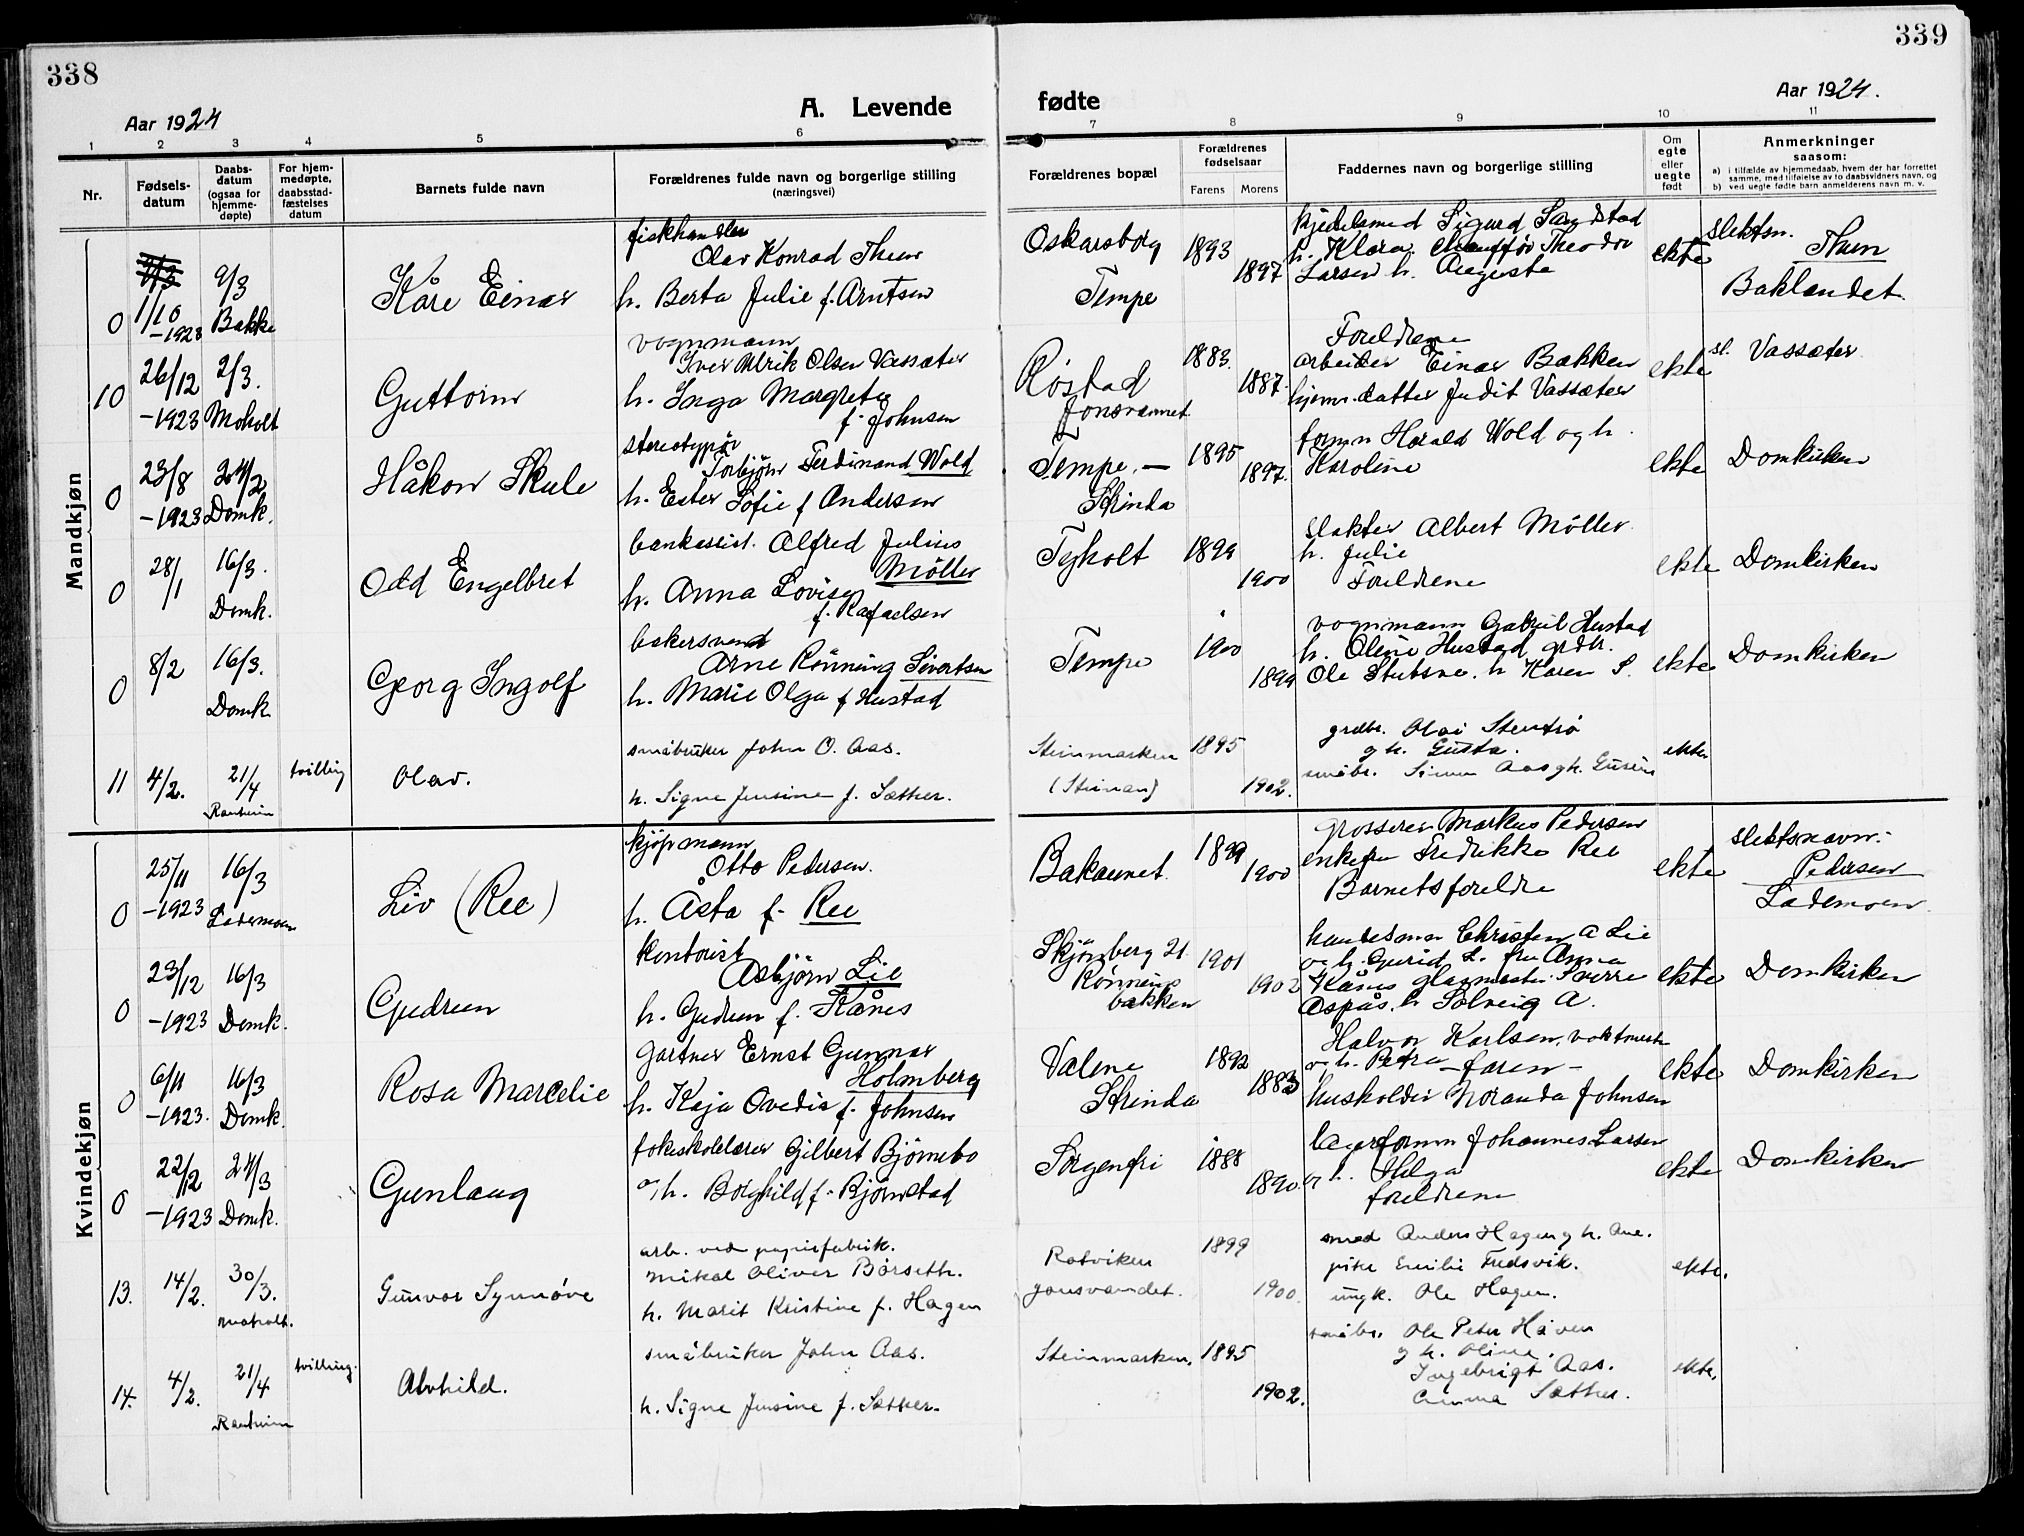 338
339
Aar 1924
A. Levende
fødte
Aar 1924.
1 2 3 4 5 6 7 8 9 10 11
Nr.
Fødsels-
datum
Daabs-
datum
(ogsaa for
hjemme-
døpte)
For hjem-
medøpte,
daabsstad-
fæstelses
datum
Barnets fulde navn
Forældrenes fulde navn og borgerlige stilling
(næringsvei)
Forældrenes bopæl
Forældrenes
fødselsaar
Farens Morens
Faddernes navn og borgerlige stilling
Om
egte
eller
uegte
født
Anmerkninger
saasom:
a) i tilfælde av hjemmedaab, hvem der har forrettet
samme, med tilføielse av to daabsvidners navn, og
b) ved uegte fødte barn anmelderens navn m. v.
Mandkjøn
0 1/10 -1923 9/3 Bakke
Kåre Einar
fiskhandler
Olav Konrad Thun
h. Berta Julie f. Arntsen
Oskarsborg
Tempe
1893 1897
kjedelsmed Sigurd Sandstad
h. Klara. chauffør Theodor
Larsen h. Augusta
ekte
slektsn.
Thun
Baklandet.
10 26/12 -1923 2/3. Moholt
Guttorm
vognmann
Iver Ulrik Olsen Vassæter
h. Inga Margrete
f. Johnsen
Røstad
Jonsvannet
1883. 1887.
Foreldrene
arbeider Einar Bakken
hjemv. datter Judit Vassæter
ekte
sl. Vassæter
0 23/8 -1923 24/2 Domk.
Håkon Skule
stereotypør
Torbjørn Ferdinand Wold
h. Ester Sofie f Andersen
Tempe. —
Strinda
1895 1897.
formn Harald Wold og h.
Karoline
ekte
Domkirken
0 28/1 16/3. Domk.
Odd Engelbret
bankassist. Alfred Julius
Møller
h. Anna Lovise
f. Rafaelsen
Tyholt
1899 1900
slakter Albert Møller
h. Julie
Foreldrene
ekte
Domkirken
0 8/2 16/3. Domk
Georg Ingolf
bakersvend
Arne Rønning Sivertsen
h. Marie Olga f Hustad
Tempe
1900 1899
vognmann Gabriel Hustad
h. Oline Hustad grdbr.
Ole Stubsne. h Karen S.
ekte
Domkirken
11 4/2. 21/4 Ranheim
tvilling
Olav.
småbruker John O. Aas.
h. Signe Jensine f. Sæther.
Steinmarken
(Steinan)
1895 1902.
grdbr. Olai Stentrø
g h. Gusta.
småbr. Simen Aas g h.
ekte.
Kvindekjøn
0 25/11 -1923 16/3 Lademoen
Liv (Ree)
kjøpmann
Otto Pedersen.
h. Åsta f. Ree
Bakaunet.
1899 1900
grosserer Markus Pedersen
enkefru Fredrikke Ree
Barnets foreldre
ekte
slektsnavn:
Pedersen
Lademoen.
0 23/12 -1923 16/3 Domk.
Gudrun
kontorist
Asbjørn Lie
h. Gudrun f. Kånes
Skjønberg 21
Rønnings
bakken
1901 1902
handelsmn Christen A Lie
og h. Gurid L. fru Anna
Kånes glasmester Sverre
Aspås. h Solveig A.
ekte
Domkirken
0 6/11 -1923. 16/3 Domk.
Rosa Marcelie
gartner Ernst Gunnar
Holmberg
h. Kaja Ovedia f. Johnsen
Valene
Strinda
1892 1883
Halvor Karlsen, vaktmester
og h. Petra — faren —
husholder Noranda Johnsen
ekte
Domkirken
0 22/12 -1923 24/3 Domk.
Gunlaug
folkeskolelærer Gilbert Bjørnebo
og h. Borghild f. Bjørnstad
Sorgenfri
1888 1890.
lagerformn Johannes Larsen
og h. Helga
foreldrene
ekte
Domkirken
13. 14/2. 30/3. Moholt.
Gunvor Synnøve
arb. ved papirfabrik.
Mikal Oliver Børseth.
h. Marit Kristine f. Hagen
Ratviken
Jonsvandet.
1899 1900.
smed Anders Hagen g h. Ane.
pike Emilie Fredsvik.
ungk. Ole Hagen.
ekte.
14. 4/2. 21/4 Ranheim
tvilling.
Alvhild.
småbruker John Aas.
h. Signe Jensine f. Sæther.
Steinmarken.
1895 1902.
småbr. Ole Peter Håven
g h. Oline.
Ingebrigt Aas.
Anna Sæther.
ekte.